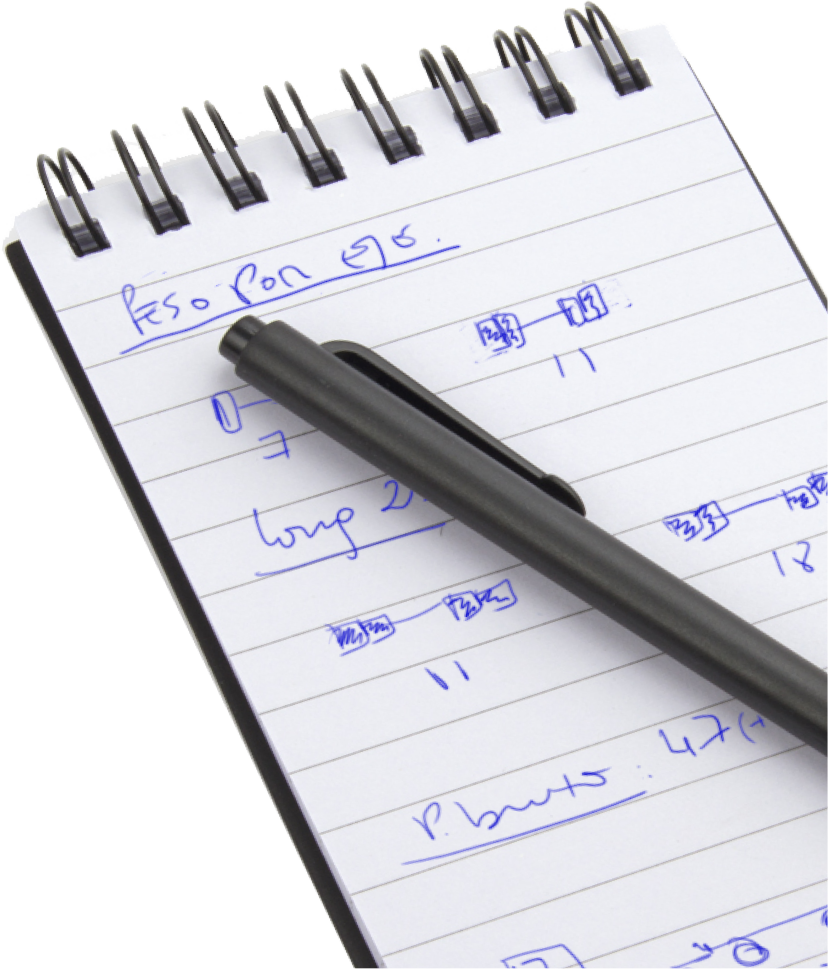 Peso Por eje.
11
7
Long 2
18
11
P. bruto: 47 (+